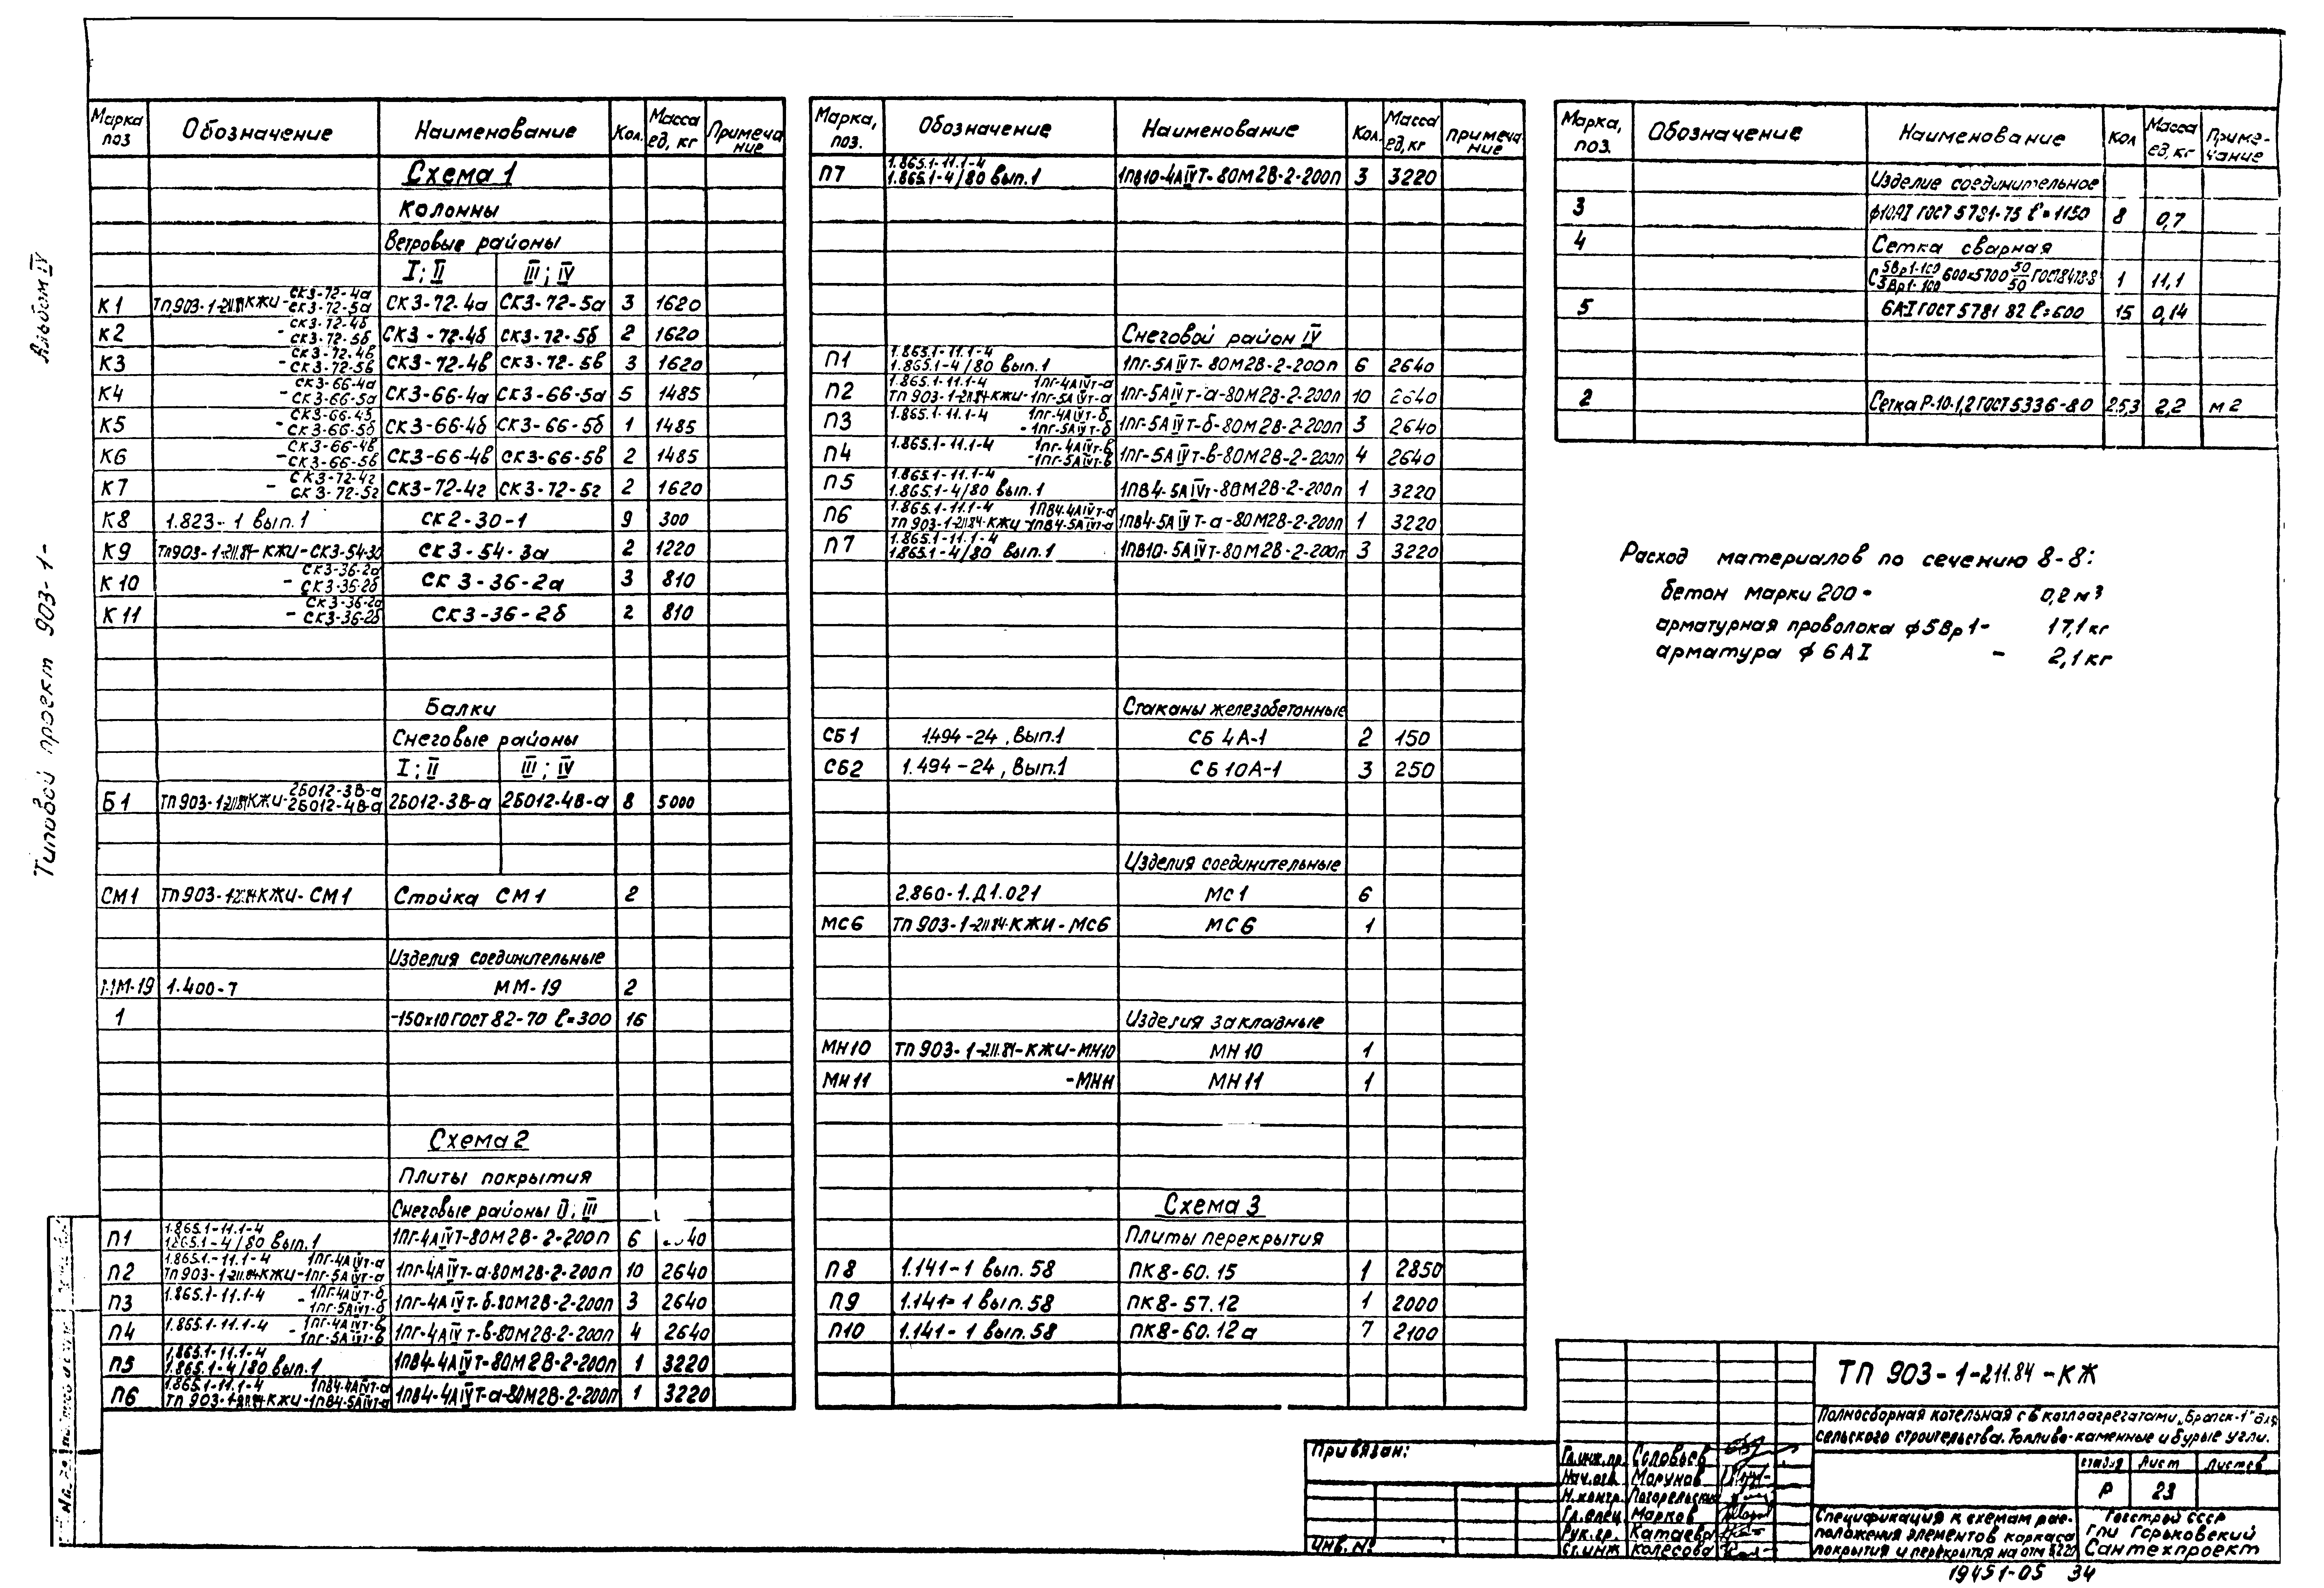 Альбом IV
Типовой проект 903-1-
Марка поз Обозначение Наименование Кол. Масса ед, кг Примечание
Схема 1
Колонны
Ветровые районы
I; II III; IV
К1 ТП 903-1-211.84 КЖИ- СК3-72-4а СК3-72-5а СК3-72-4а СК3-72-5а 3 1620
К2 - СК3-72-4б СК3-72-5б СК3-72-4б СК3-72-5б 2 1620
К3 - СК3-72-4в СК3-72-5в СК3-72-4в СК3-72-5в 3 1620
К4 - СК3-66-4а СК3-66-5а СК3-66-4а СК3-66-5а 5 1485
К5 - СК3-66-4б СК3-66-5б СК3-66-4б СК3-66-5б 1 1485
К6 - СК3-66-4в СК3-66-5в СК3-66-4в СК3-66-5в 2 1485
К7 - СК3-72-4г СК3-72-5г СК3-72-4г СК3-72-5г 2 1620
К8 1.823-1 вып.1 СК2-30-1 9 300
К9 ТП903-1-211.84-КЖИ-СК3-54-3а СК3-54-3а 2 1220
К10 - СК3-36-2а СК3-36-2б СК3-36-2а 3 810
К11 - СК3-36-2а СК3-36-2б СК3-36-2б 2 810
Балки
Снеговые районы
I; II III; IV
Б1 ТП 903-1-211.84 КЖИ- 2Б012-3В-а 2Б012-4В-а 2Б012-3В-а 2Б012-4В-а 8 5000
СМ1 ТП903-1-211.84 КЖИ-СМ1 Стойка СМ1 2
Изделия соединительные
ММ-19 1.400-7 ММ-19 2
1 -150х10 ГОСТ 82-70 ℓ=300 16
Схема 2
Плиты покрытия
Снеговые районы II; III
П1 1.865.1-11.1-4 1.865.1-4/80 вып.1 1ПГ-4АIVТ-80М2В-2-200П 6 40
П2 1.865.1-11.1-4 ТП903-1-211.84 КЖИ- 1ПГ-4АIVТ-а 1ПГ-5АIVТ-а 1ПГ-4АIVТ-а-80М2В-2-200П 10 2640
П3 1.865.1-11.1-4 - 1ПГ-4АIVТ-б 1ПГ-5АIVТ-б 1ПГ-4АIVТ-б-80М2В-2-200П 3 2640
П4 1.865.1-11.1-4 - 1ПГ-4АIVТ-в 1ПГ-5АIVТ-в 1ПГ-4АIVТ-в-80М2В-2-200П 4 2640
П5 1.865.1-11.1-4 1.865.1-4/80 вып.1 1ПВ4-4АIVТ-80М2В-2-200П 1 3220
П6 1.865.1-11.1-4 ТП 903-1-211.84 КЖИ- 1ПВ4-4АIVТ-а 1ПВ4-5АIVТ-а 1ПВ4-4АIVТ-а-80М2В-2-200П 1 3220
Марка, поз. Обозначение Наименование Кол. Масса ед, кг Примечание
П7 1.865.1-11.1-4 1.865.1-4/80 вып.1 1ПВ10-4АIVТ-80М2В-2-200П 3 3220
Снеговой район IV
П1 1.865.1-11.1-4 1.865.1-4/80 вып.1 1ПГ-5АIVТ-80М2В-2-200П 6 2640
П2 1.865.1-11.1-4 ТП 903-1-211.84 КЖИ- 1ПГ-4АIVТ-а 1ПГ-5АIVТ-а 1ПГ-5АIVТ-а-80М2В-2-200П 10 2640
П3 1.865.1-11.1-4 - 1ПГ-4АIVТ-б 1ПГ-5АIVТ-б 1ПГ-5АIVТ-б-80М2В-2-200П 3 2640
П4 1.865.1-11.1-4 - 1ПГ-4АIVТ-в 1ПГ-5АIVТ-в 1ПГ-5АIVТ-в-80М2В-2-200П 4 2640
П5 1.865.1-11.1-4 1.865.1-4/80 вып.1 1ПВ4-5АIVТ-80М2В-2-200П 1 3220
П6 1.865.1-11.1-4 ТП 903-1-211.84-КЖИ- 1ПВ4-4АIVТ-а 1ПВ4-5АIVТ-а 1ПВ4-5АIVТ-а-80М2В-2-200П 1 3220
П7 1.865.1-11.1-4 1.865.1-4/80 вып.1 1ПВ10-5АIVТ-80М2В-2-200П 3 3220
Стаканы железобетонные
СБ1 1.494-24, вып.1 СБ 4А-1 2 150
СБ2 1.494-24, вып.1 СБ 10А-1 3 250
Изделия соединительные
2.860-1.Д1.021 МС1 6
МС6 ТП 903-1-211.84-КЖИ-МС6 МС6 1
Изделия закладные
МН10 ТП 903-1-211.84-КЖИ-МН10 МН10 1
МН11 -МН11 МН11 1
Схема 3
Плиты перекрытия
П8 1.141-1 вып.58 ПК8-60.15 1 2850
П9 1.141-1 вып.58 ПК8-57.12 1 2000
П10 1.141-1 вып.58 ПК8-60.12а 7 2100
Марка, поз. Обозначение Наименование Кол Масса ед, кг Примечание
Изделие соединительное
3 ф10АI ГОСТ 5781-75 ℓ=1150 8 0,7
4 Сетка сварная
С 5Вр1-100 5Вр1-100 600х5700 50 50 ГОСТ8478-8 1 11,1
5 6АI ГОСТ 5781 82 ℓ=600 15 0,14
2 Сетка Р-10-1,2 ГОСТ 5336-80 25,3 2,2 м2
Расход материалов по сечению 8-8:
бетон марки 200 - 0,2 м³
арматурная проволока ф5Вр1- 17,1 кг
арматура ф6АI - 2,1 кг
Привязан:
Инв. №
Гл.инж.пр. Соловьев
Нач.отд. Морунов
Н.контр. Погорельский
Гл.спец Марков
Рук.гр. Катаева
Ст.инж Колесова
ТП 903-1-211.84-КЖ
Полносборная котельная с 6 котлоагрегатами „Братск-1" для
сельского строительства. Топливо-каменные и бурые угли.
Стадия Лист Листов
Р 23
Спецификация к схемам рас-
положения элементов каркаса
покрытия и перекрытия на отм
Госстрой СССР
ГПИ Горьковский
Сантехпроект
19451-05 34